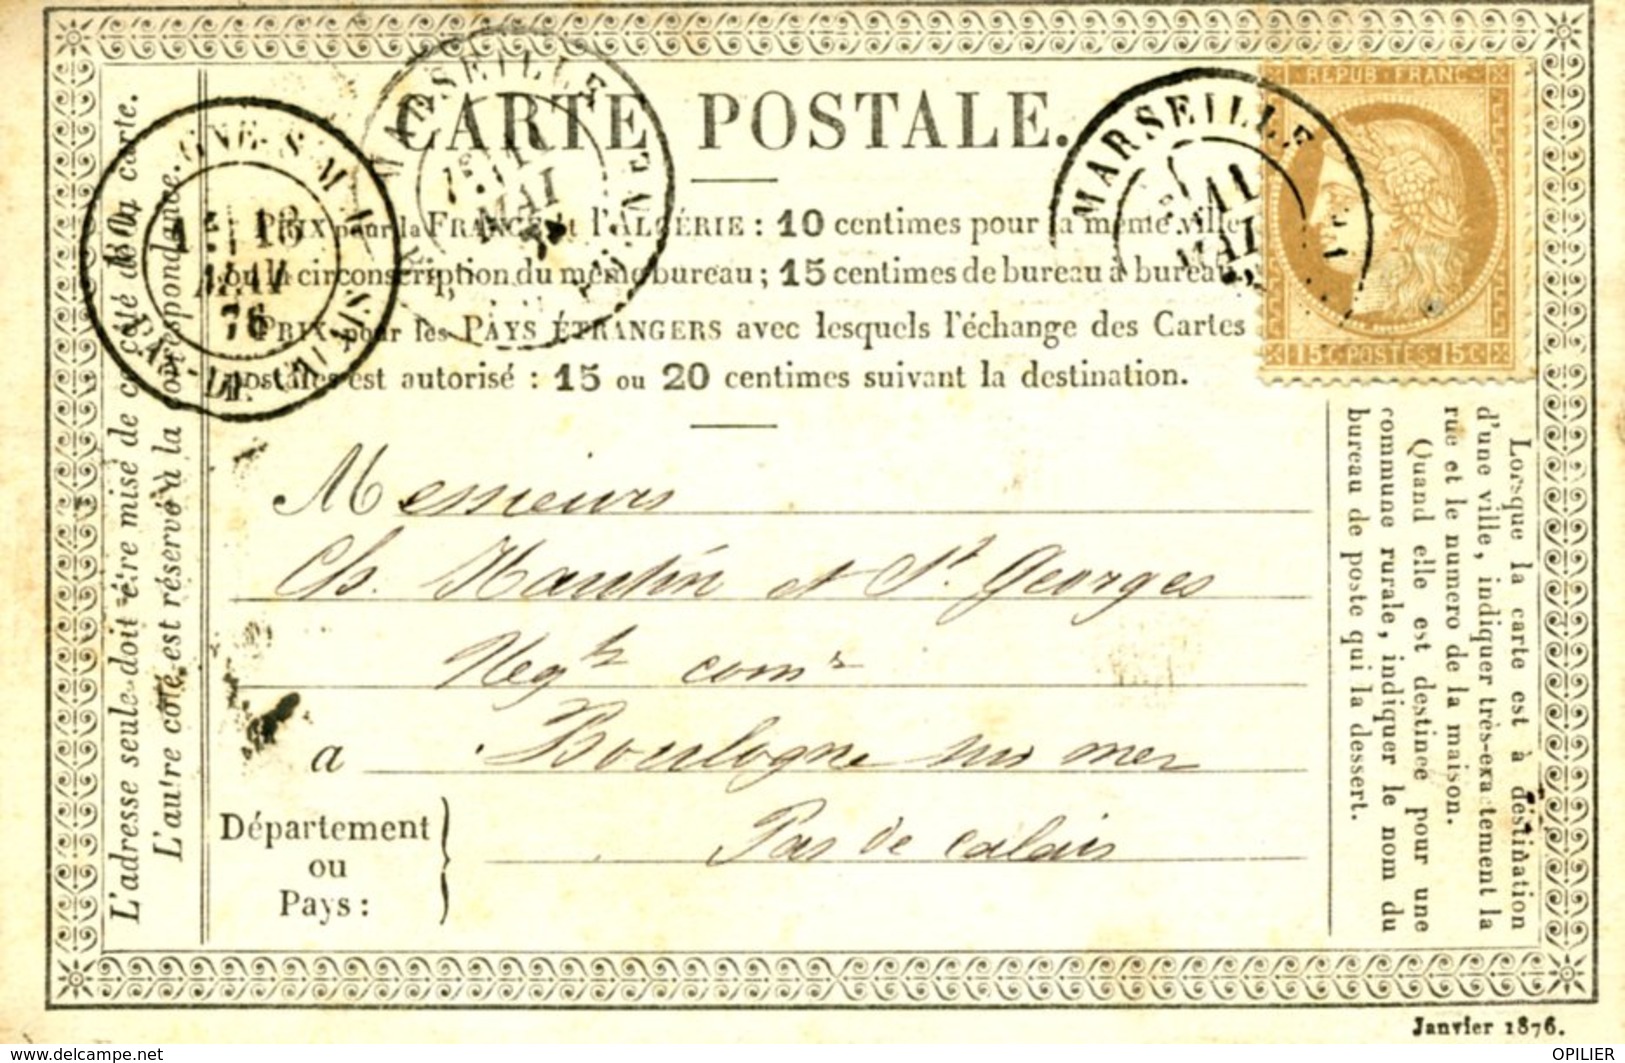 CARTE POSTALE.
PRIX pour la FRANCE et l'ALGÉRIE : 10 centimes pour la même ville
ou la circonscription du même bureau ; 15 centimes de bureau à bureau.
PRIX pour les PAYS ÉTRANGERS avec lesquels l'échange des Cartes
postales est autorisé : 15 ou 20 centimes suivant la destination.
REPUB FRANC
15 C · POSTES · 15 C
MARSEILLE
11
MAI
MARSEILLE
11
MAI
BOULOGNE-S-MER
13
MAI
76
PAS-DE-CALAIS
L'adresse seule doit être mise de ce côté de la carte.
L'autre côté est réservé à la correspondance.
Messieurs
Ch. Hautin et St. Georges
Negts comrs
a Boulogne sur mer
Département
ou
Pays :
Pas de Calais
Lorsque la carte est à destination
d'une ville, indiquer très-exactement la
rue et le numero de la maison.
Quand elle est destinée pour une
commune rurale, indiquer le nom du
bureau de poste qui la dessert.
Janvier 1876.
www.delcampe.net
OPILIER